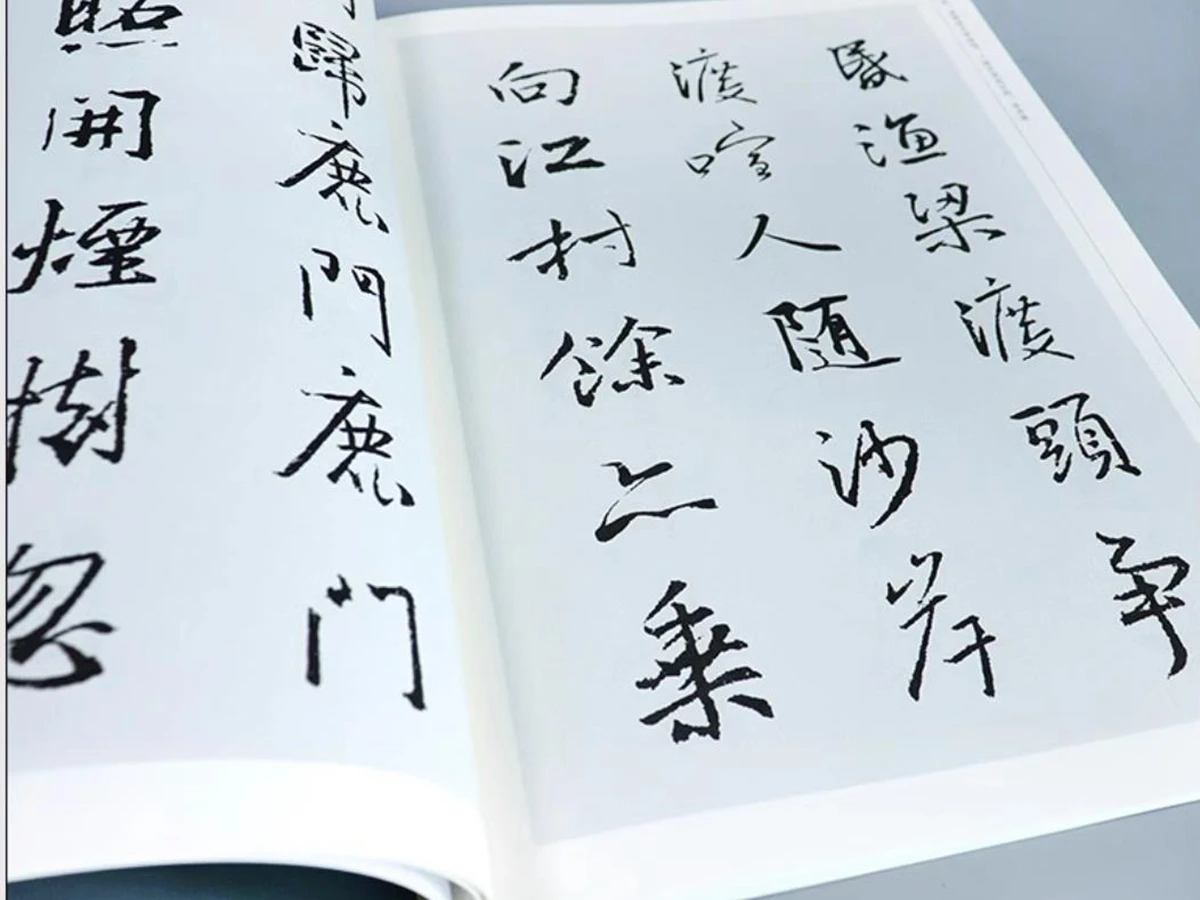 昏渔梁渡頭争
渡喧人随沙岸
向江村餘亦乘
歸鹿門鹿門
照開煙樹忽